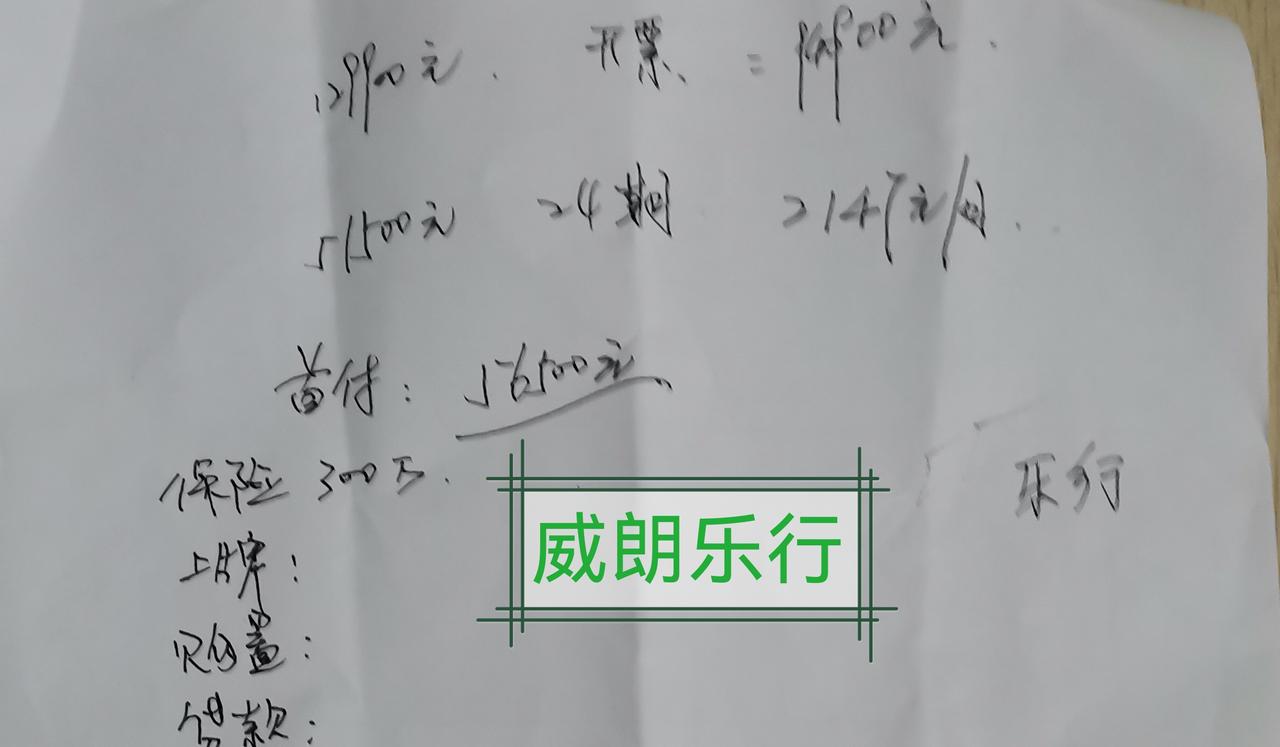 开票 = 元.
51500元 24期 2147元/月.
首付: 56500元
保险 300万.
乐行
威朗乐行
上牌:
购置:
贷款: